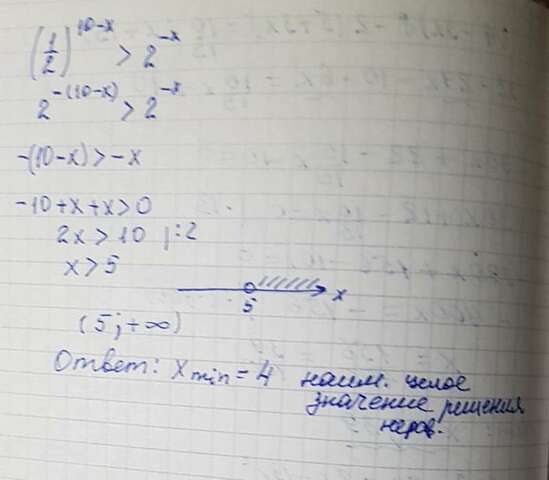 (1/2)^(10-x) > 2^(-x)
2^(-(10-x)) > 2^(-x)
-(10-x) > -x
-10+x+x>0
2x > 10 |:2
x > 5
5 x
(5; +∞)
Ответ: x min = 4 наим. целое
значение решения
нерав.